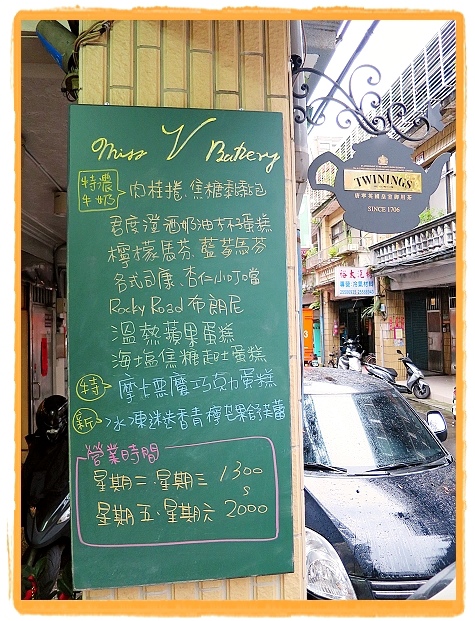 Miss V Bakery
特濃牛奶 肉桂捲、焦糖軟麵包
君度澄酒奶油杯蛋糕
檸檬馬芬、藍莓馬芬
各式司康、杏仁小叮噹
Rocky Road 布朗尼
溫熱蘋果蛋糕
海塩焦糖起士蛋糕
特 摩卡惡魔巧克力蛋糕
新 冰凍迷迭香青檸芒果舒芙蕾
營業時間
星期二、星期三 1300
s
星期五、星期六 2000
TWININGS
唐寧英國皇室御用茶
SINCE 1706